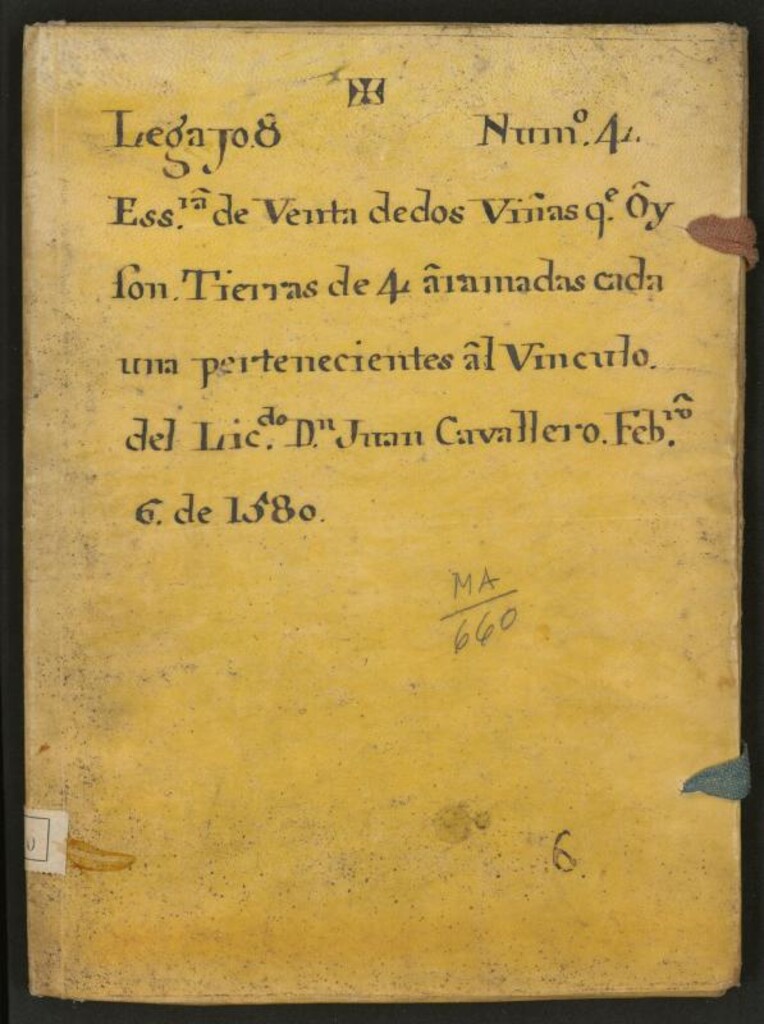 ✠
Legajo.8 Num.º 4.
Ess.ra de Venta dedos Viñas q.e Ôy
son. Tierras de 4 âramadas cada
una pertenecientes âl Vinculo.
del Lic.do D.n Juan Cavallero. Feb.ro
6. de 1580.
MA
660
6